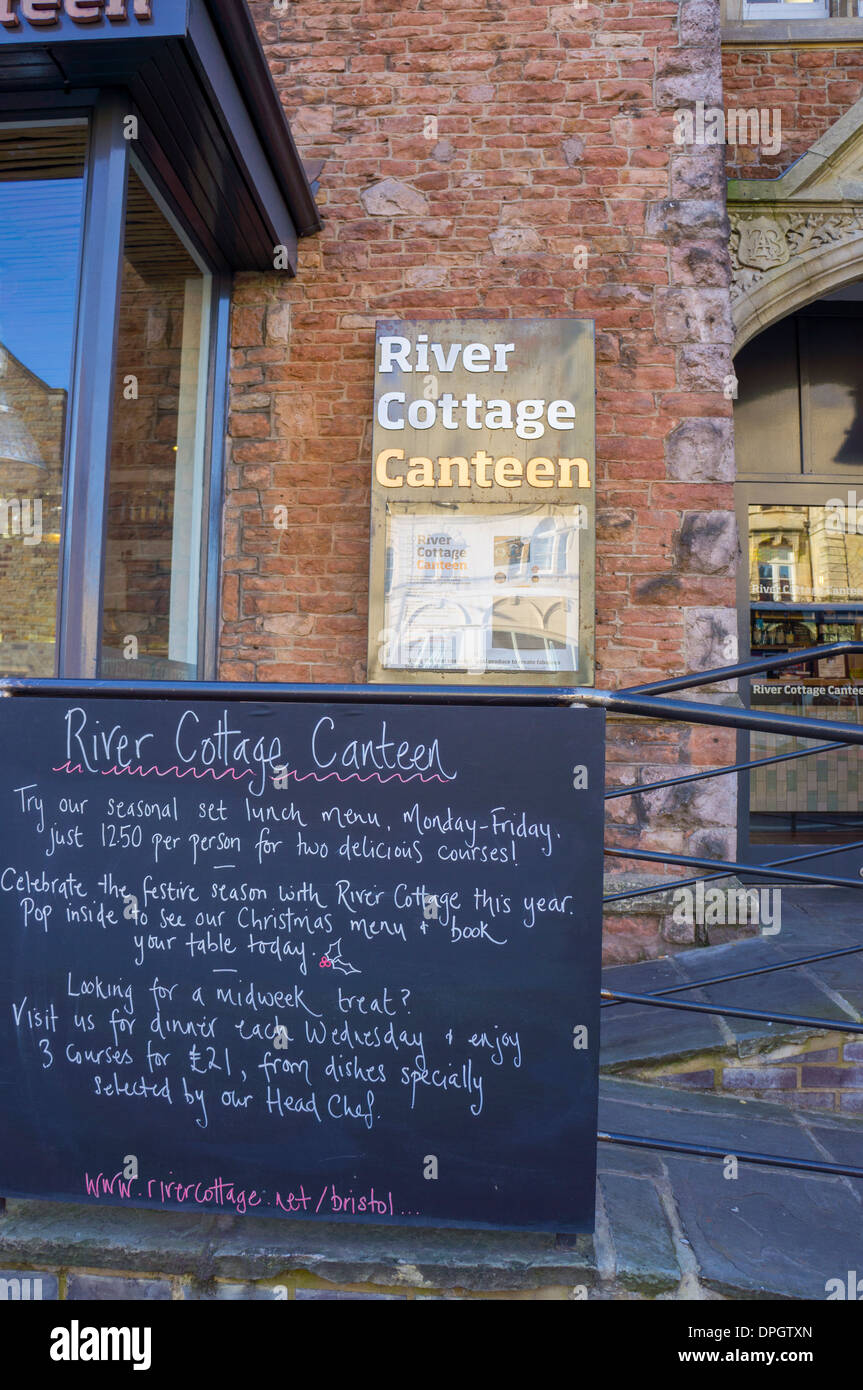 teen
River
Cottage
Canteen
River
Cottage
Canteen
River Cottage Canteen
River Cottage Canteen
River Cottage Canteen
Try our seasonal set lunch menu, Monday-Friday.
just 1250 per person for two delicious courses!
Celebrate the festive season with River Cottage this year.
Pop inside to see our Christmas menu & book
your table today.
Looking for a midweek treat?
Visit us for dinner each Wednesday & enjoy
3 courses for £21, from dishes specially
selected by our Head Chef.
www.rivercottage.net/bristol...
alamy
Image ID: DPGTXN
www.alamy.com